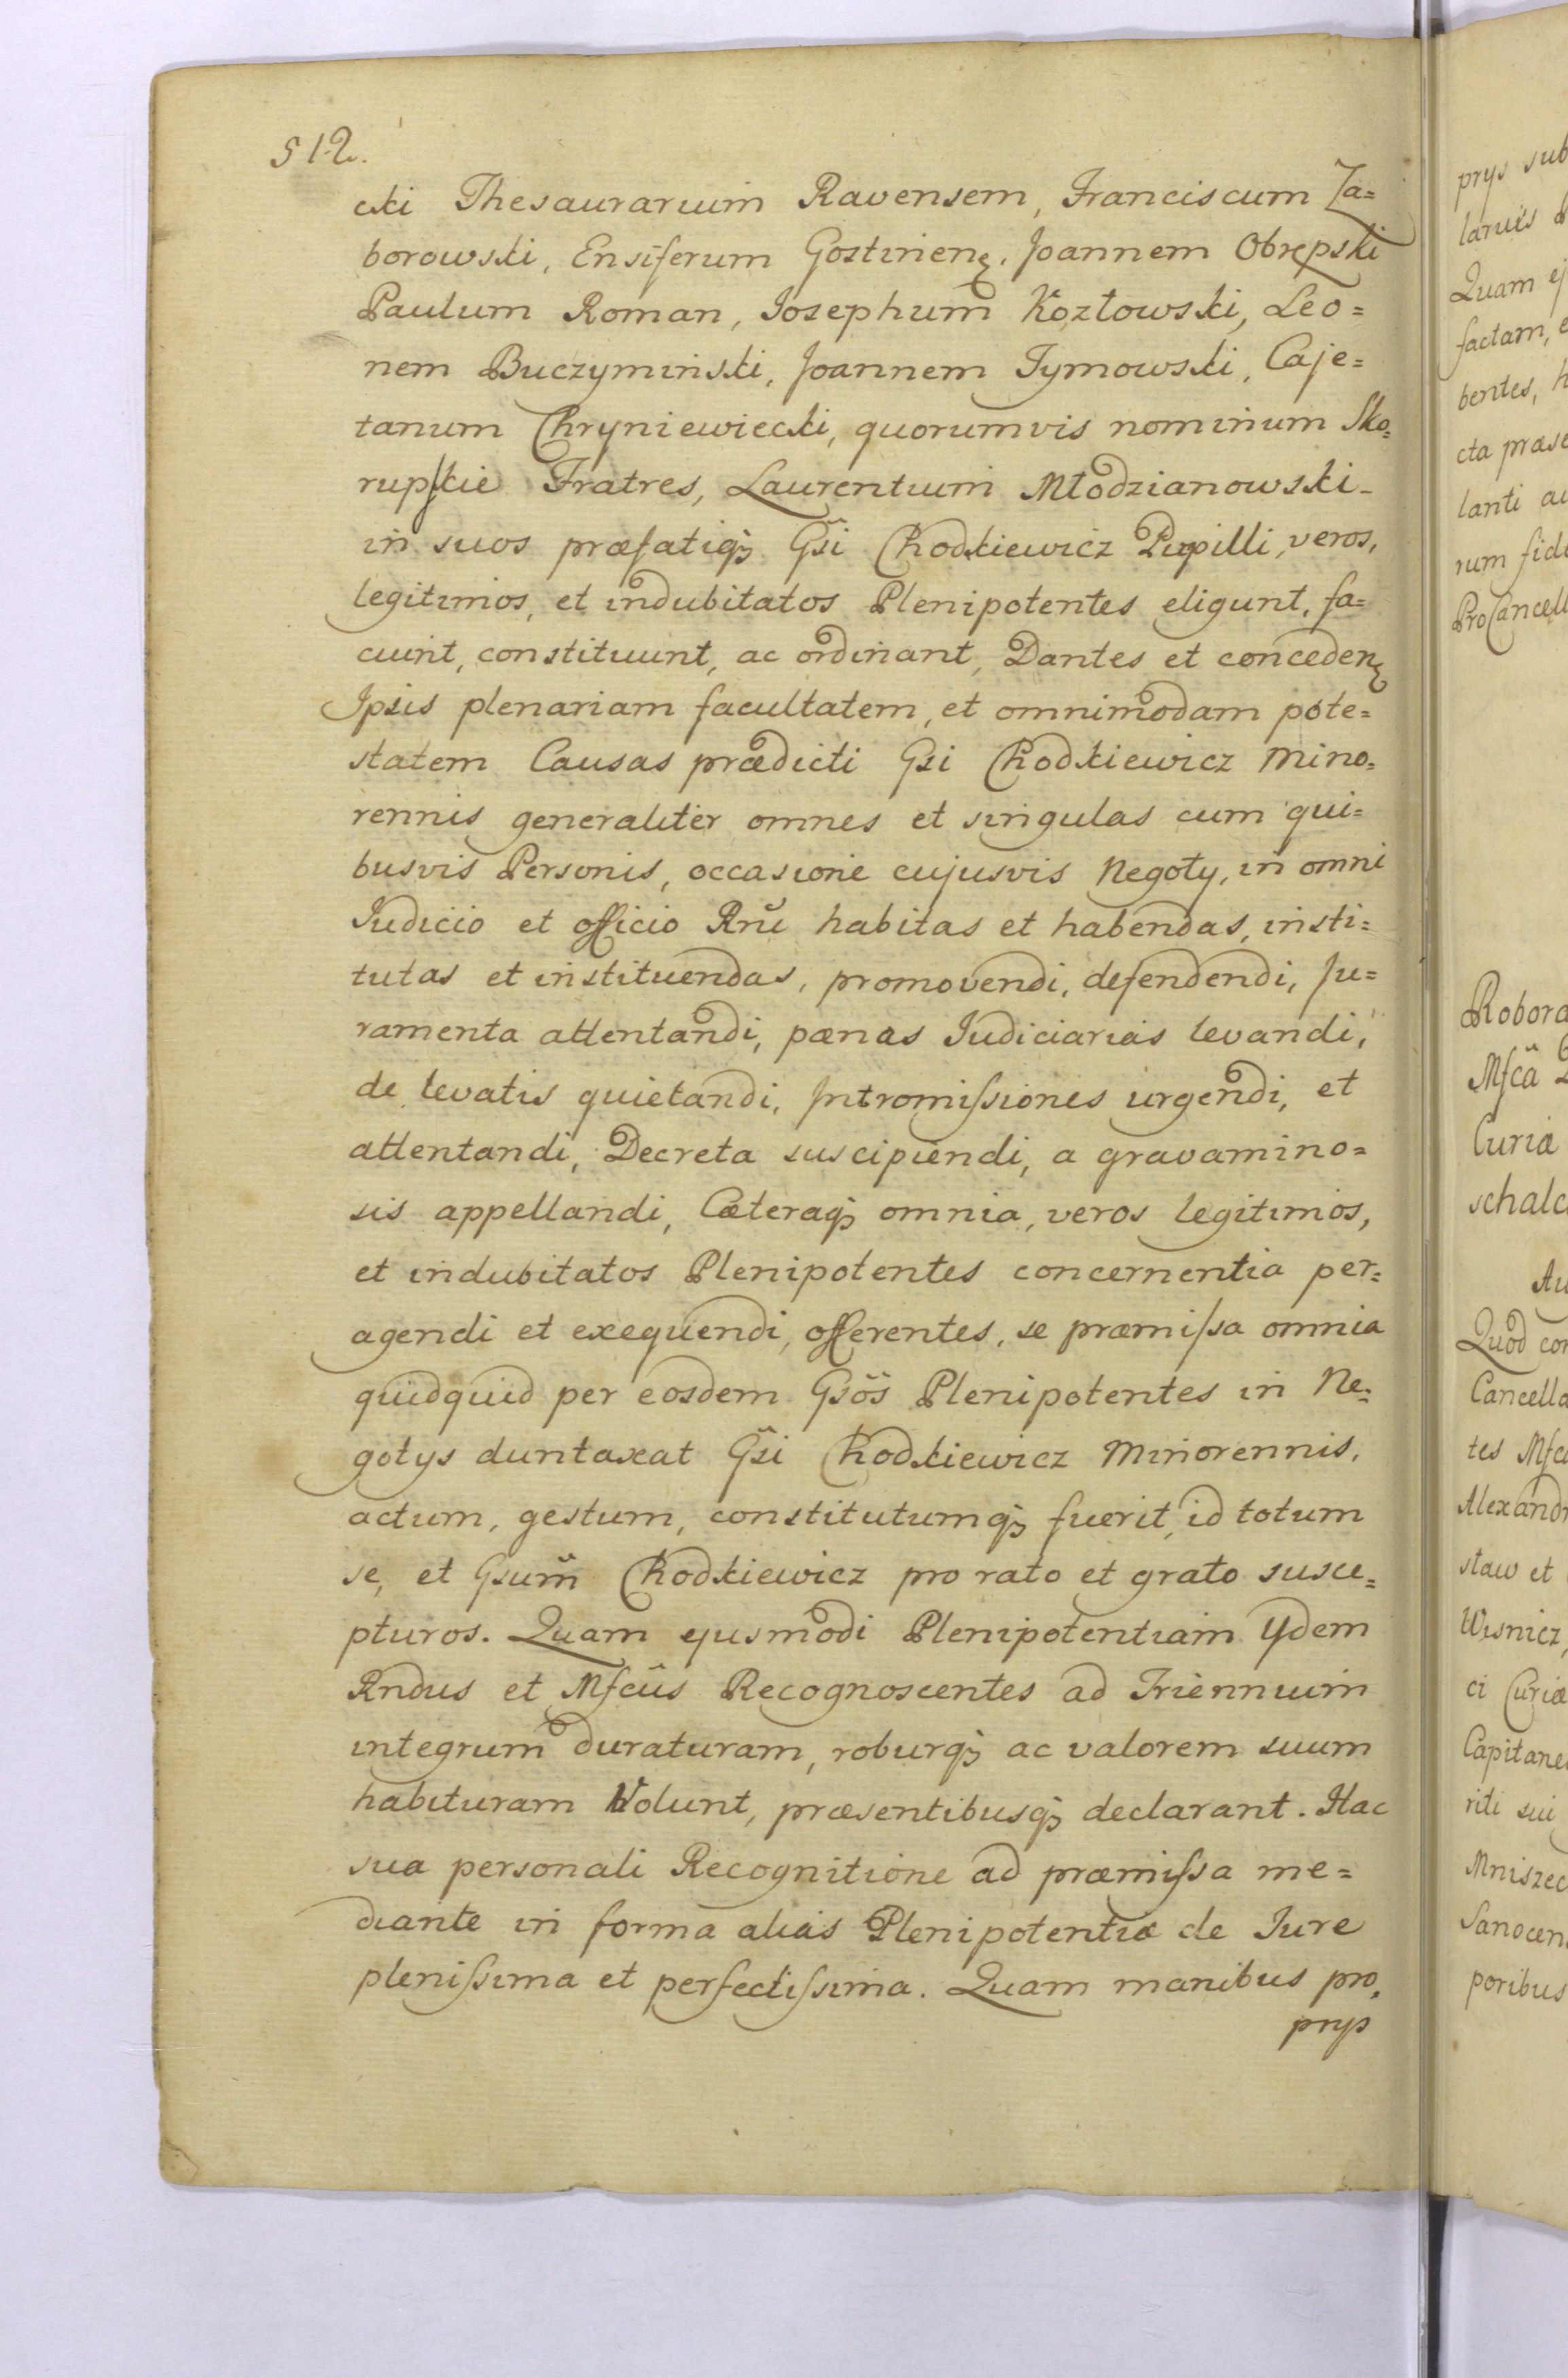 512.
cki Thesaurarium Ravensem, Franciscum Za=
borowski, Ensiferum Gostinenę. Joannem Obrępski
Paulum Roman, Iosephum Kozłowski, Leo=
nem Buczyminski, Joannem Tymowski, Caje=
tanum Chryniewiecki, quorumvis nominum Sko=
rupskie Fratres, Laurentium Młodzianowski-
in suos præfatiqȝ Gsi Chodkiewicz Pupilli, veros,
legitimos, et indubitatos Plenipotentes eligunt, fa=
ciunt, constituunt, ac ordinant, Dantes et concedenę
Ipsis plenariam facultatem, et omnimodam pote=
statem Causas prædicti Gsi Chodkiewicz Mino=
rennis generaliter omnes et singulas cum qui=
busvis Personis, occasione cujusvis Negoty, in omni
Iudicio et officio Rñi habitas et habendas, insti=
tutas et instituendas, promovendi, defendendi, Ju=
ramenta attentandi, pænas Iudiciarias levandi,
de levatis quietandi, Intromiſsiones urgendi, et
attentandi, Decreta suscipiendi, a gravamino=
sis appellandi, Cæteraqȝ omnia, veros legitimos,
et indubitatos Plenipotentes concernentia per=
agendi et exequendi, offerentes, se præmiſsa omnia
quidquid per eosdem Gsos Plenipotentes in Ne=
gotys duntaxat Gsi Chodkiewicz Minorennis,
actum, gestum, constitutumqȝ fuerit, id totum
se, et Gsum Chodkiewicz pro rato et grato susce=
pturos. Quam ejusmodi Plenipotentiam Ydem
Rndus et Mſcus Recognoscentes ad Triennium
integrum duraturam, roburqȝ ac valorem suum
habituram Volunt, præsentibusqȝ declarant. Hac
sua personali Recognitione ad præmiſsa me=
diante in forma alias Plenipotentiæ de Iure
pleniſsima et perfectiſsima. Quam manibus pro,
prys
prys sub
larues
Quam ej
factam, e
bentes, h
cta præse
lanti au
rum fide
ProCancell
Robora
Mſca
Curiæ
schalc
Au
Quod con
Cancella
tes Mſca
Alexandr
staw et
Wisnicz,
ci Curiæ
Capitane
riti sui
Mniszec
Sanocen
poribus